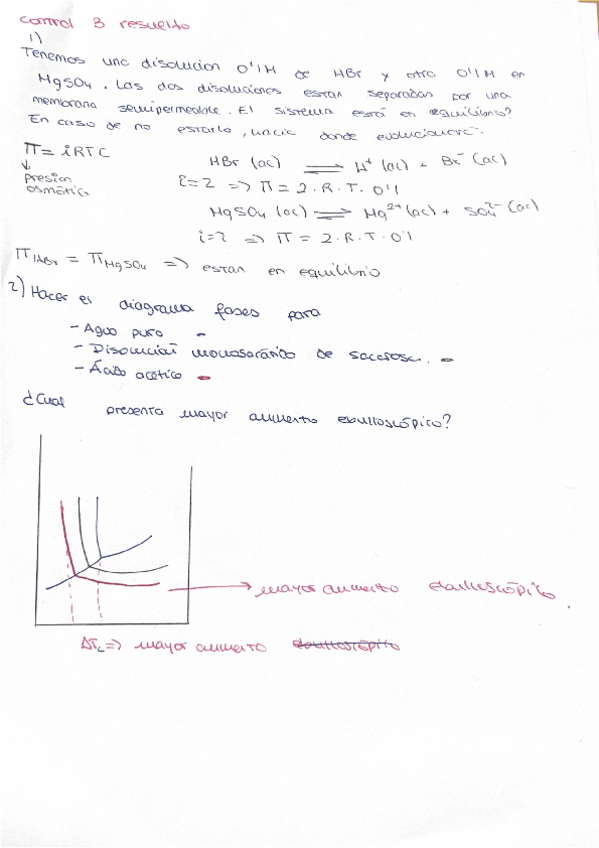 control 3 resuelto
1)
Tenemos una disolucion 0'1M de HBr y otra 0'1M en
MgSO4. Las dos disoluciones estan separadas por una
membrana semipermeable. El sistema está en equilibrio?
En caso de no estarlo, hacia donde evolucionará.
π = iRTC
↓
presion
osmótica
HBr (ac) ⇌ H+ (ac) + Br- (ac)
i=2 => π = 2.R.T.0'1
MgSO4 (ac) ⇌ Mg2+ (ac) + SO4 2- (ac)
i=2 => π = 2.R.T.0'1
πHBr = πMgSO4 => estan en equilibrio
2) Hacer el diagrama fases para
- Agua pura
- de sacarosa.
- Ácido acético
¿Cual presenta mayor aumento ebulloscópico?
→ mayor aumento ebulloscópico.
ΔTc => mayor aumento ebulloscópico